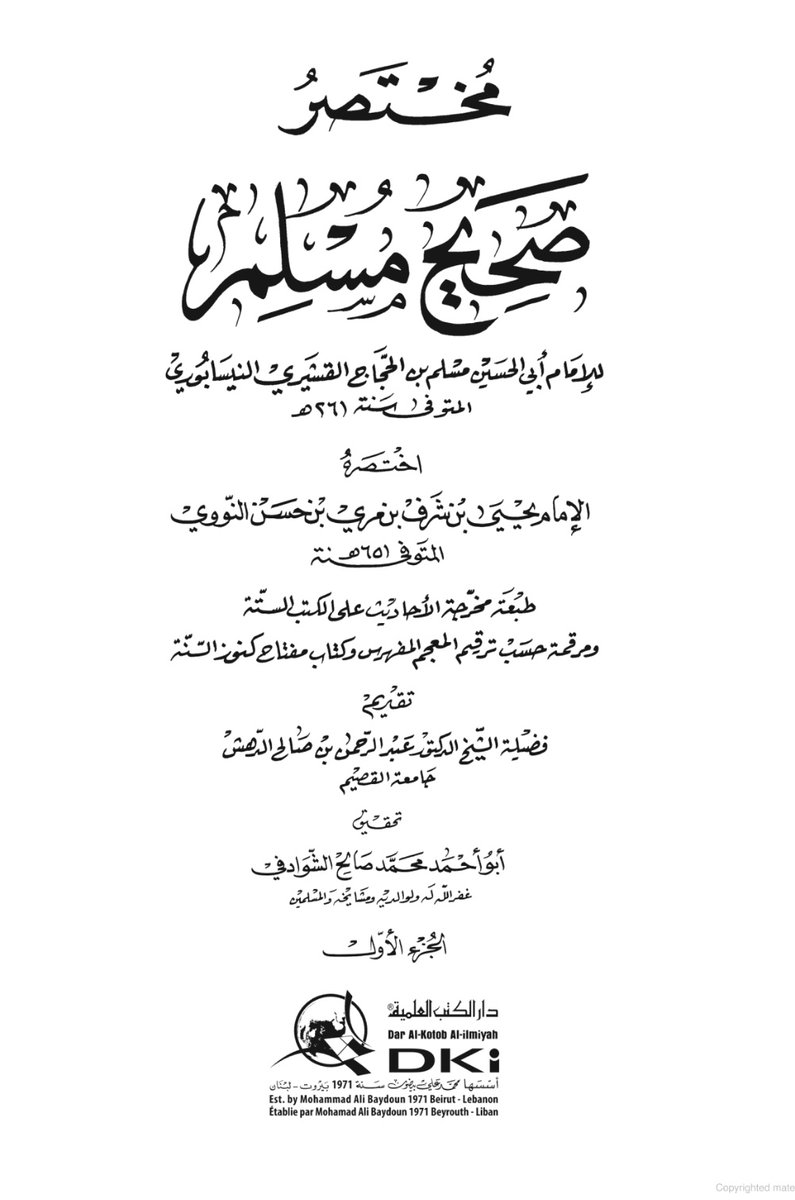 مُخْتَصَرُ
صَحِيح مُسْلِم
للإمام أبي الحسين مسلم بن الحجاج القشيري النيسابوري
المتوفى سنة ٢٦١ هـ
اختصره
الإمام يحيى بن شرف بن مري بن حسن النووي
المتوفى ٦٥١ هـ سنة
طبعة مخرّجة الأحاديث على الكتب الستّة
ومرقمة حسب ترقيم المعجم المفهرس وكتاب مفتاح كنوز السّنّة
تقديم
فضيلة الشيخ الدكتور عبد الرحمن بن صالح الدهش
جامعة القصيم
تحقيق
أبو أحمد محمد صالح الشوادفي
غفر الله له ولوالديه ومشايخه والمسلمين
الجزء الأول
دار الكتب العلمية®
Dar Al-Kotob Al-ilmiyah
DKi
أسسها محمد علي بيضون سنة 1971 بيروت - لبنان
Est. by Mohammad Ali Baydoun 1971 Beirut - Lebanon
Établie par Mohamad Ali Baydoun 1971 Beyrouth - Liban
Copyrighted mate